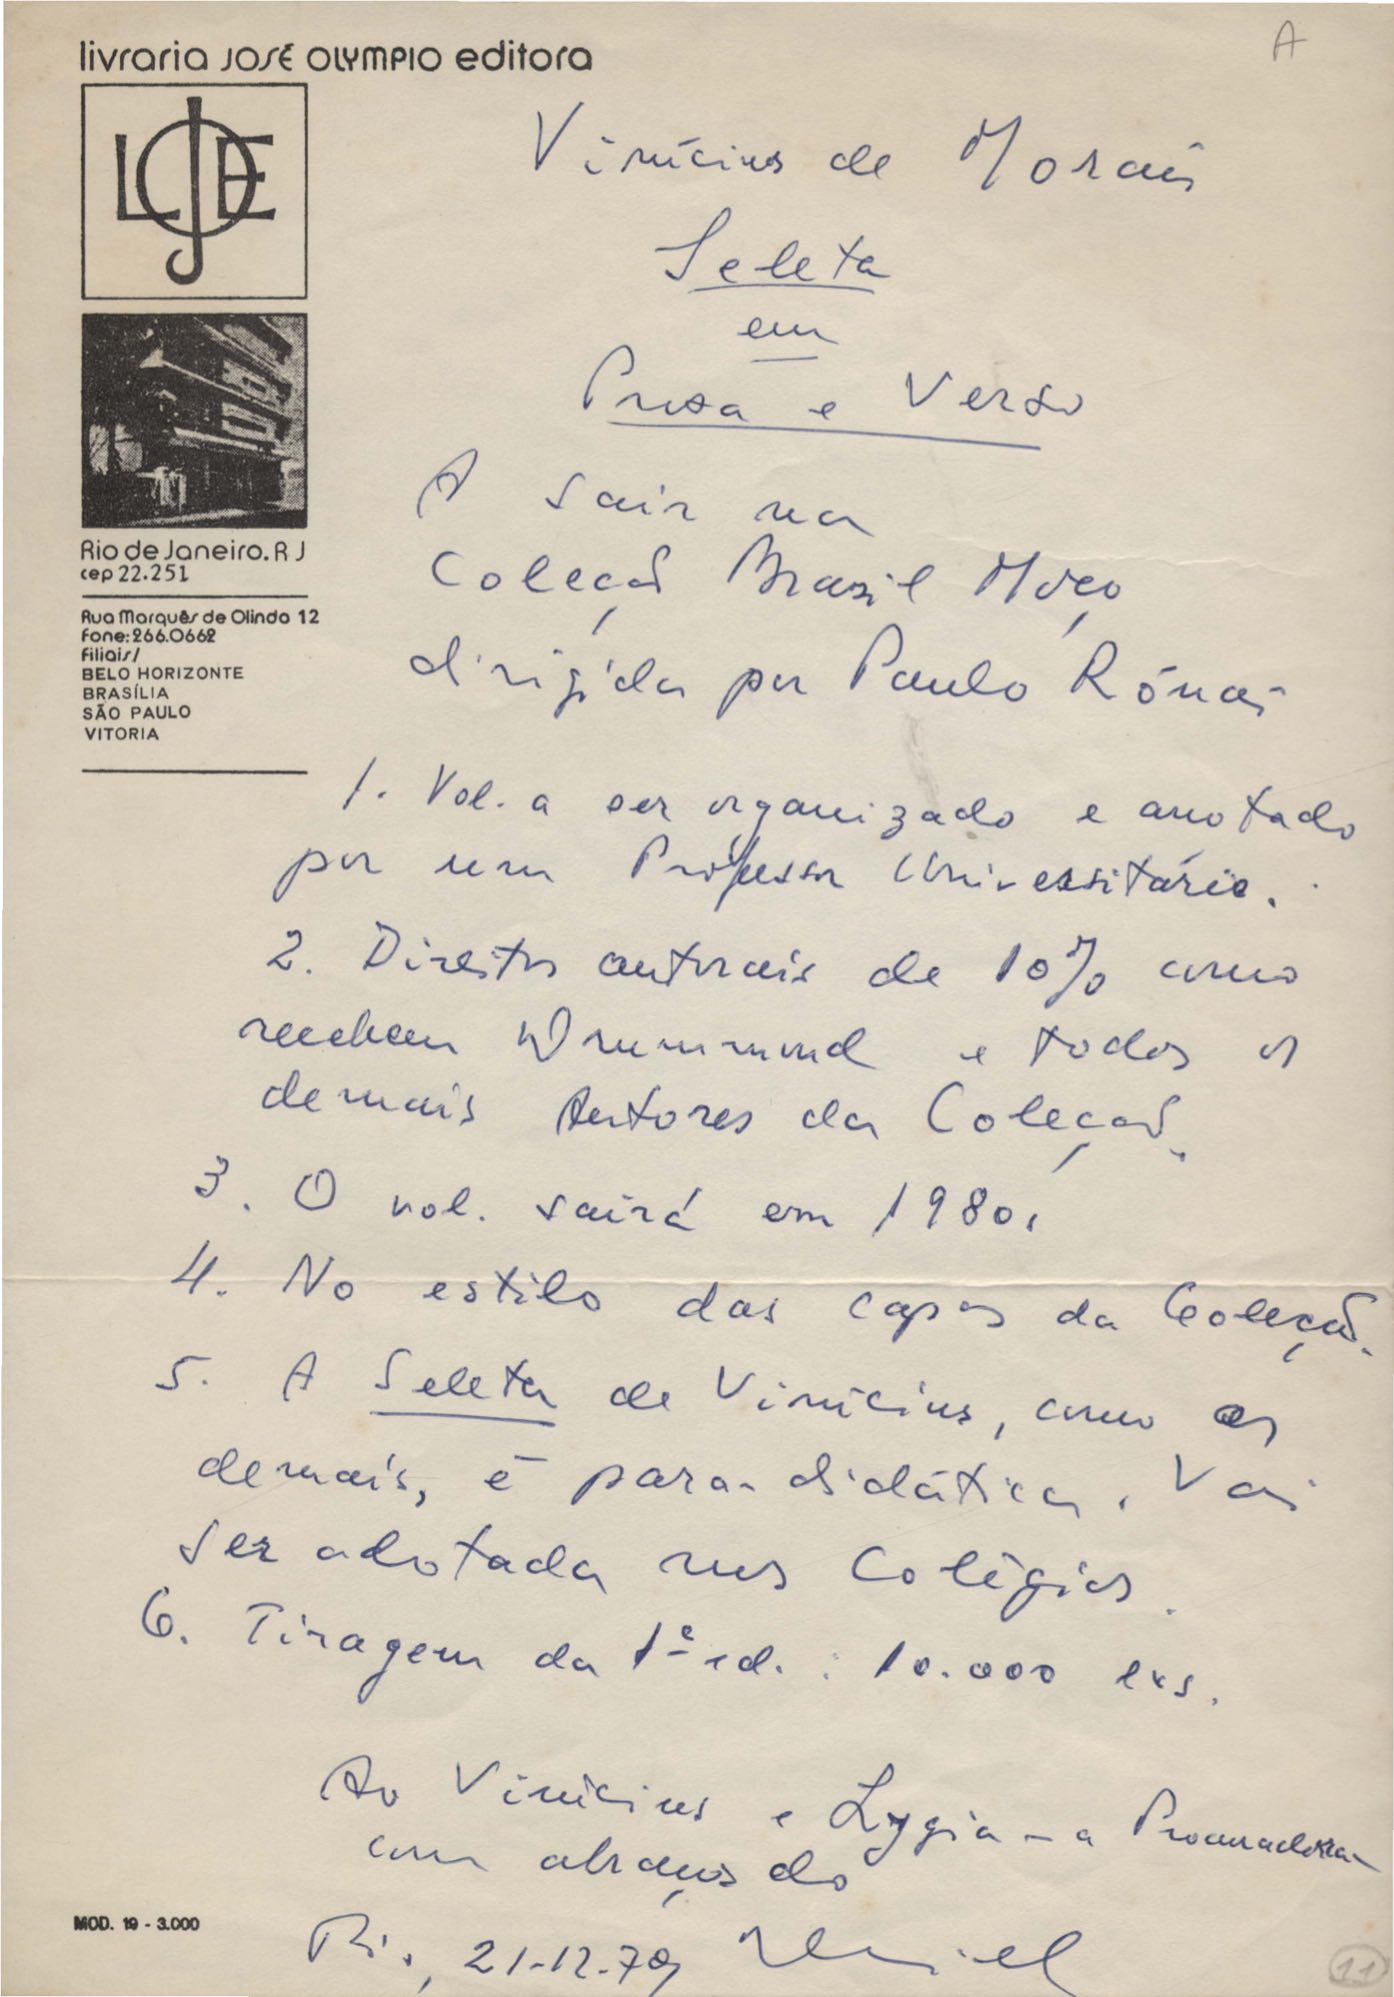 livraria JOSÉ OLYMPIO editora
A
LJOE
Rio de Janeiro. RJ
cep 22.251
Rua Marquês de Olinda 12
Fone: 266.0662
Filiais/
BELO HORIZONTE
BRASÍLIA
SÃO PAULO
VITORIA
Vinícius de Morais
Seleta
em
Prosa e Verso
A sair na
Coleção Brasil Moço
dirigida por Paulo Rónai
1. Vol. a ser organizado e anotado
por um Professor Universitário.
2. Direitos autorais de 10% como
recebem Drummond e todos os
demais Autores da Coleção.
3. O vol. sairá em 1980.
4. No estilo das capas da Coleção.
5. A Seleta de Vinícius, como as
demais, é para-didática. Vai
ser adotada nos Colégios.
6. Tiragem da 1ª ed.: 10.000 exs.
Ao Vinícius e Lygia - a Procuradora -
com abraços do
Rio, 21-12-79
MOD. 19 - 3.000
11